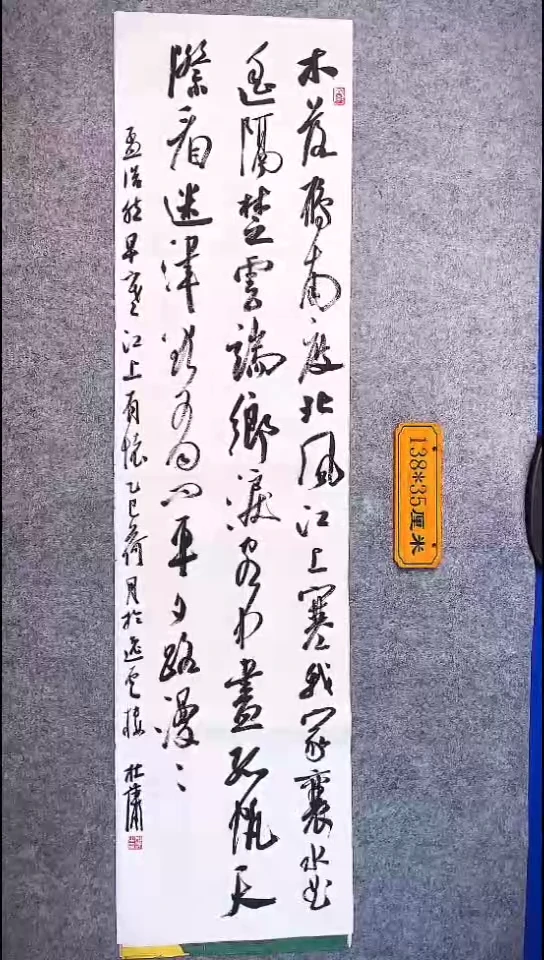 木落鴈南度北風江上寒我家襄水曲
遥隔楚雲端鄉淚客中盡孤帆天
際看迷津欲有問平夕路漫〻
孟浩然早寒江上有懷乙巳荷月於逸雲樓 杜
138*35厘米